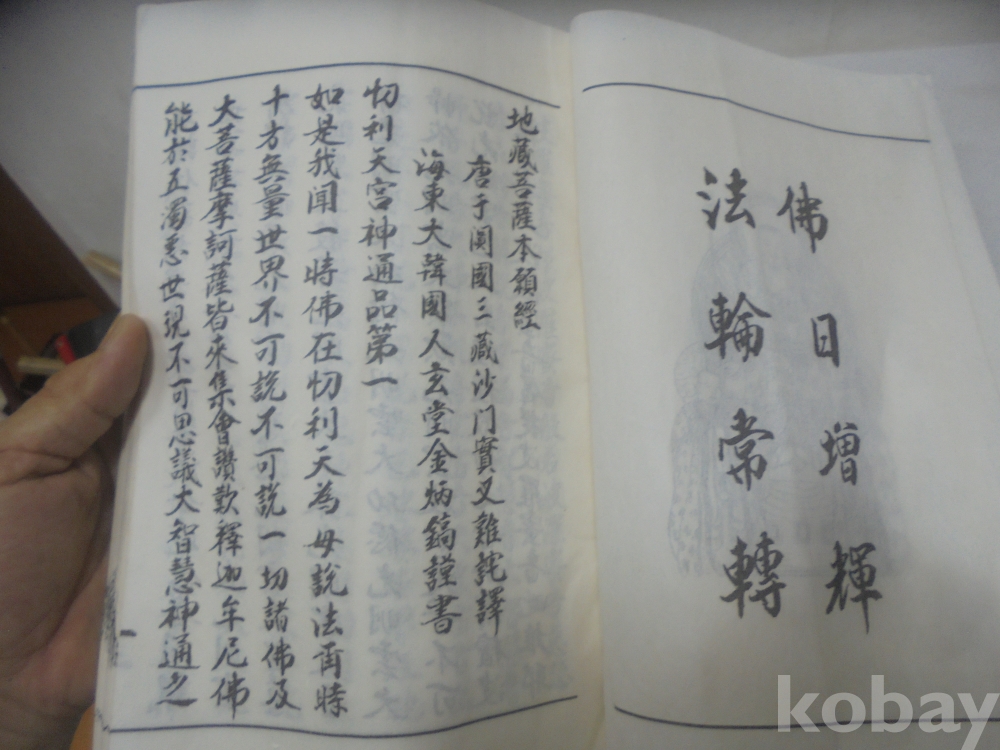 佛日增輝
法輪常轉
地藏菩薩本願經
唐于闐國三藏沙门實叉難詫譯
海東大韓國人玄堂金炳鎬謹書
忉利天宮神通品第一
如是我聞一時佛在忉利天為母說法甭時
十方無量世界不可說不可說一切諸佛及
大菩薩摩訶薩皆來集會讚歎釋迦牟尼佛
能於五濁惡世現不可思議大智慧神通之
一
kobay